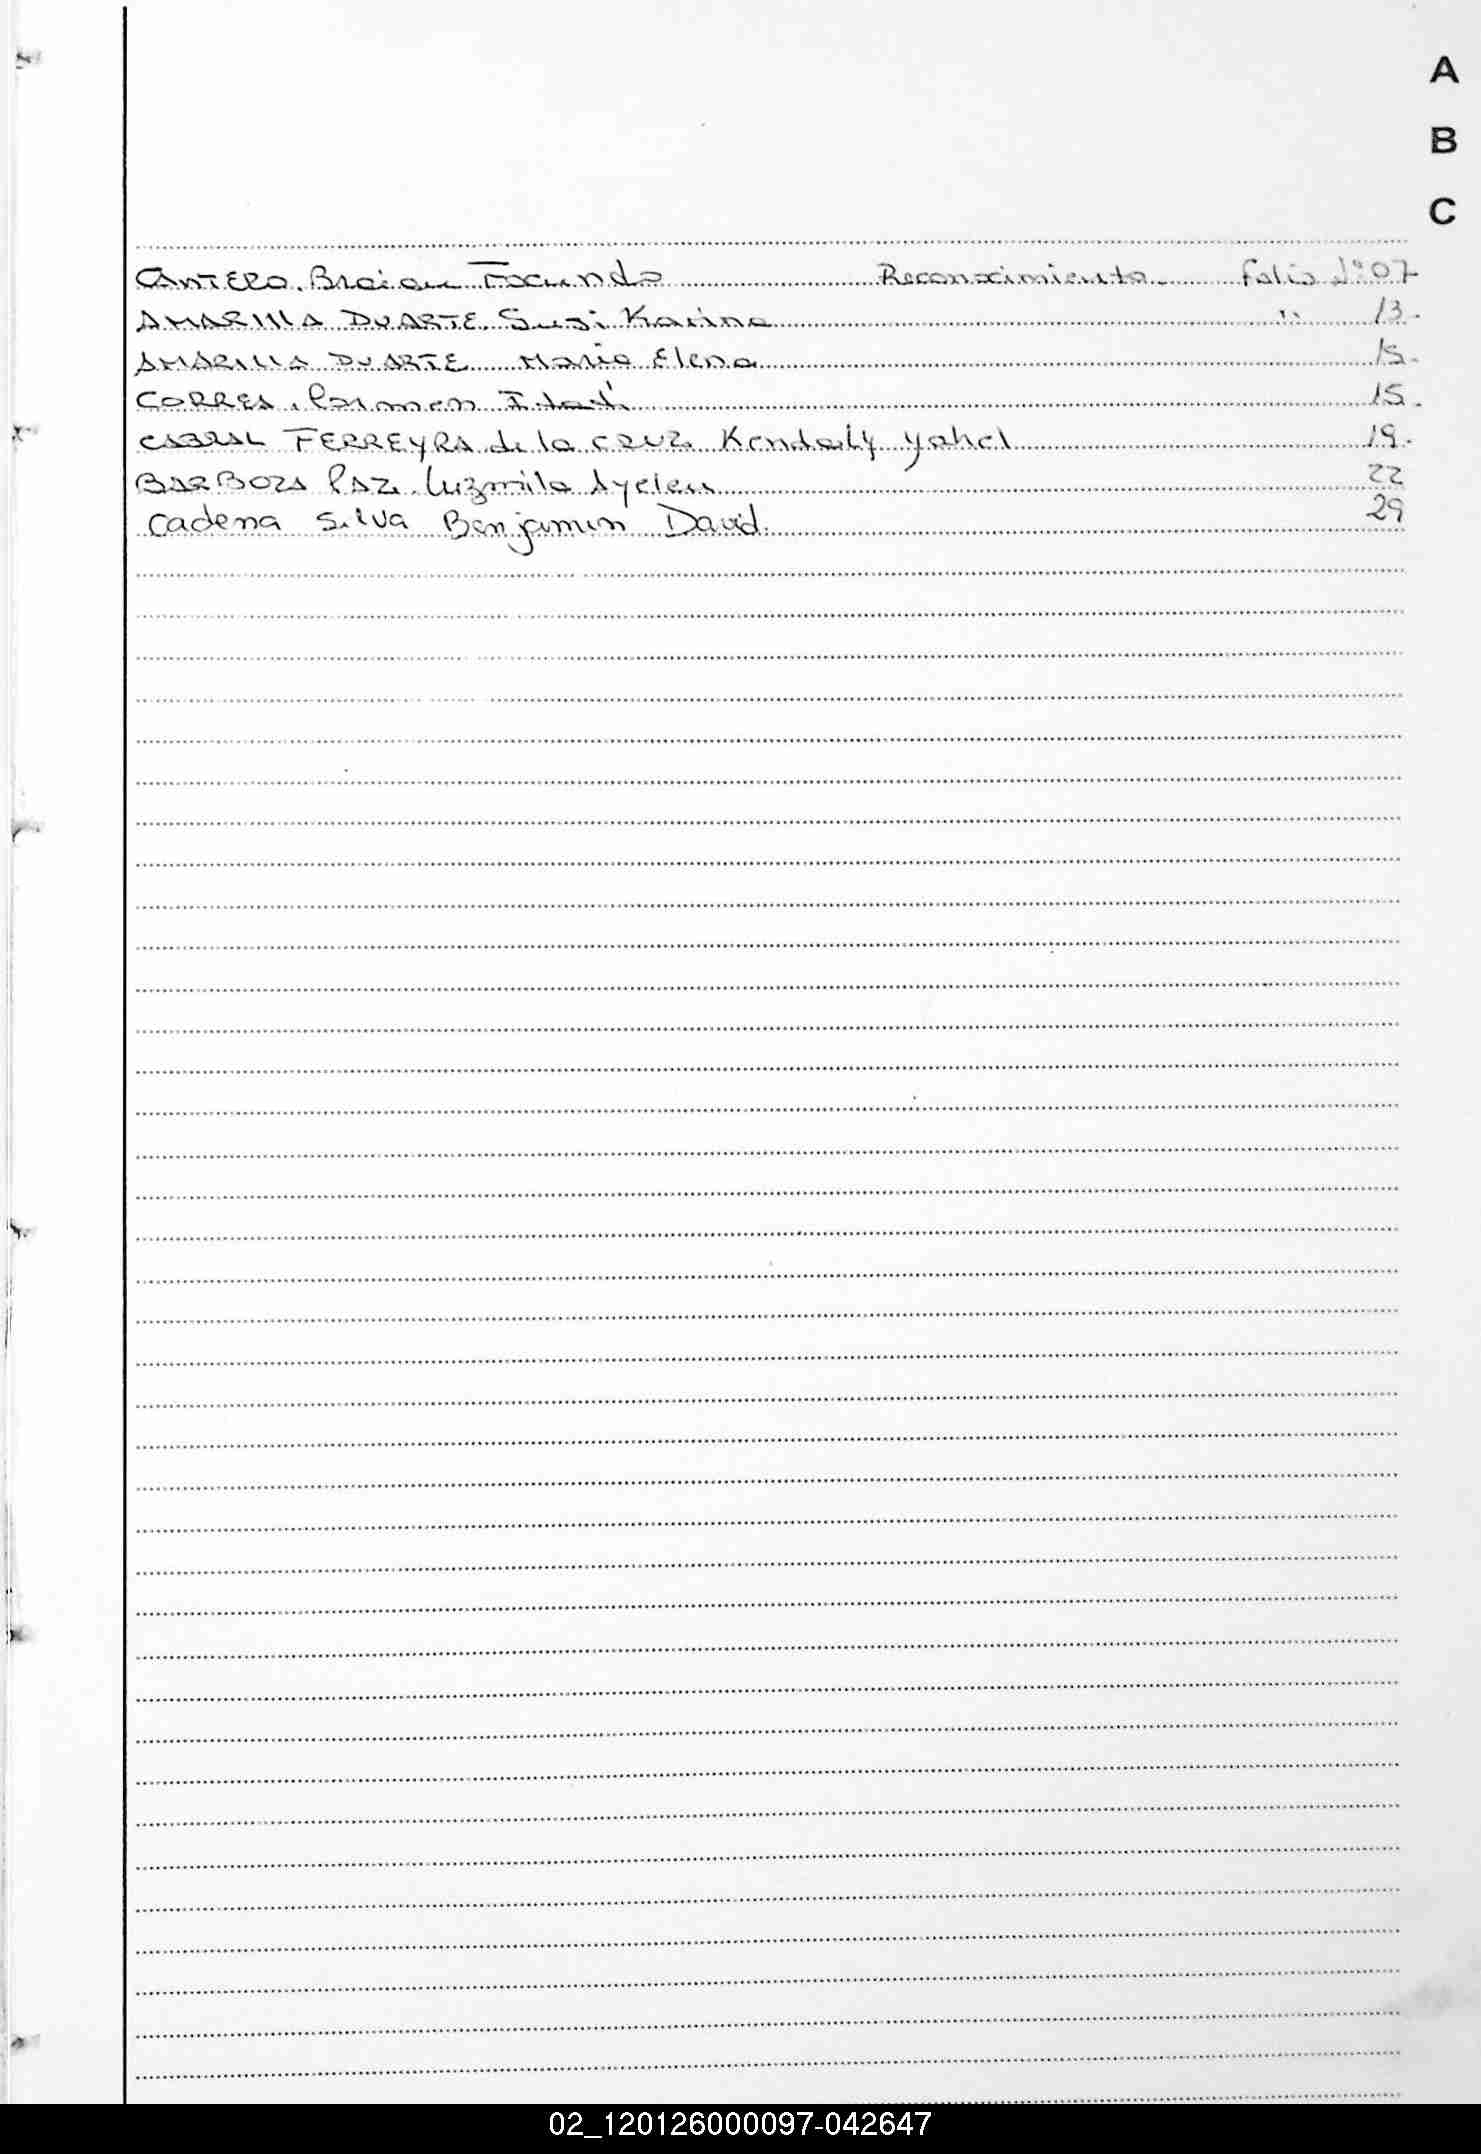 A
B
C
CANTERO. Braian Facundo Reconocimiento. folio Nº 07
AMARILLA DUARTE. Susi Karina " 13.
AMARILLA DUARTE Maria Elena 15.
CORREA. Carmen Itatí 15.
CABRAL FERREYRA de la CRUZ Kendaly Yahel 19.
BARBOZA PAZ. Luzmila Ayelen 22
Cadena Silva Benjamin David. 29
02_120126000097-042647